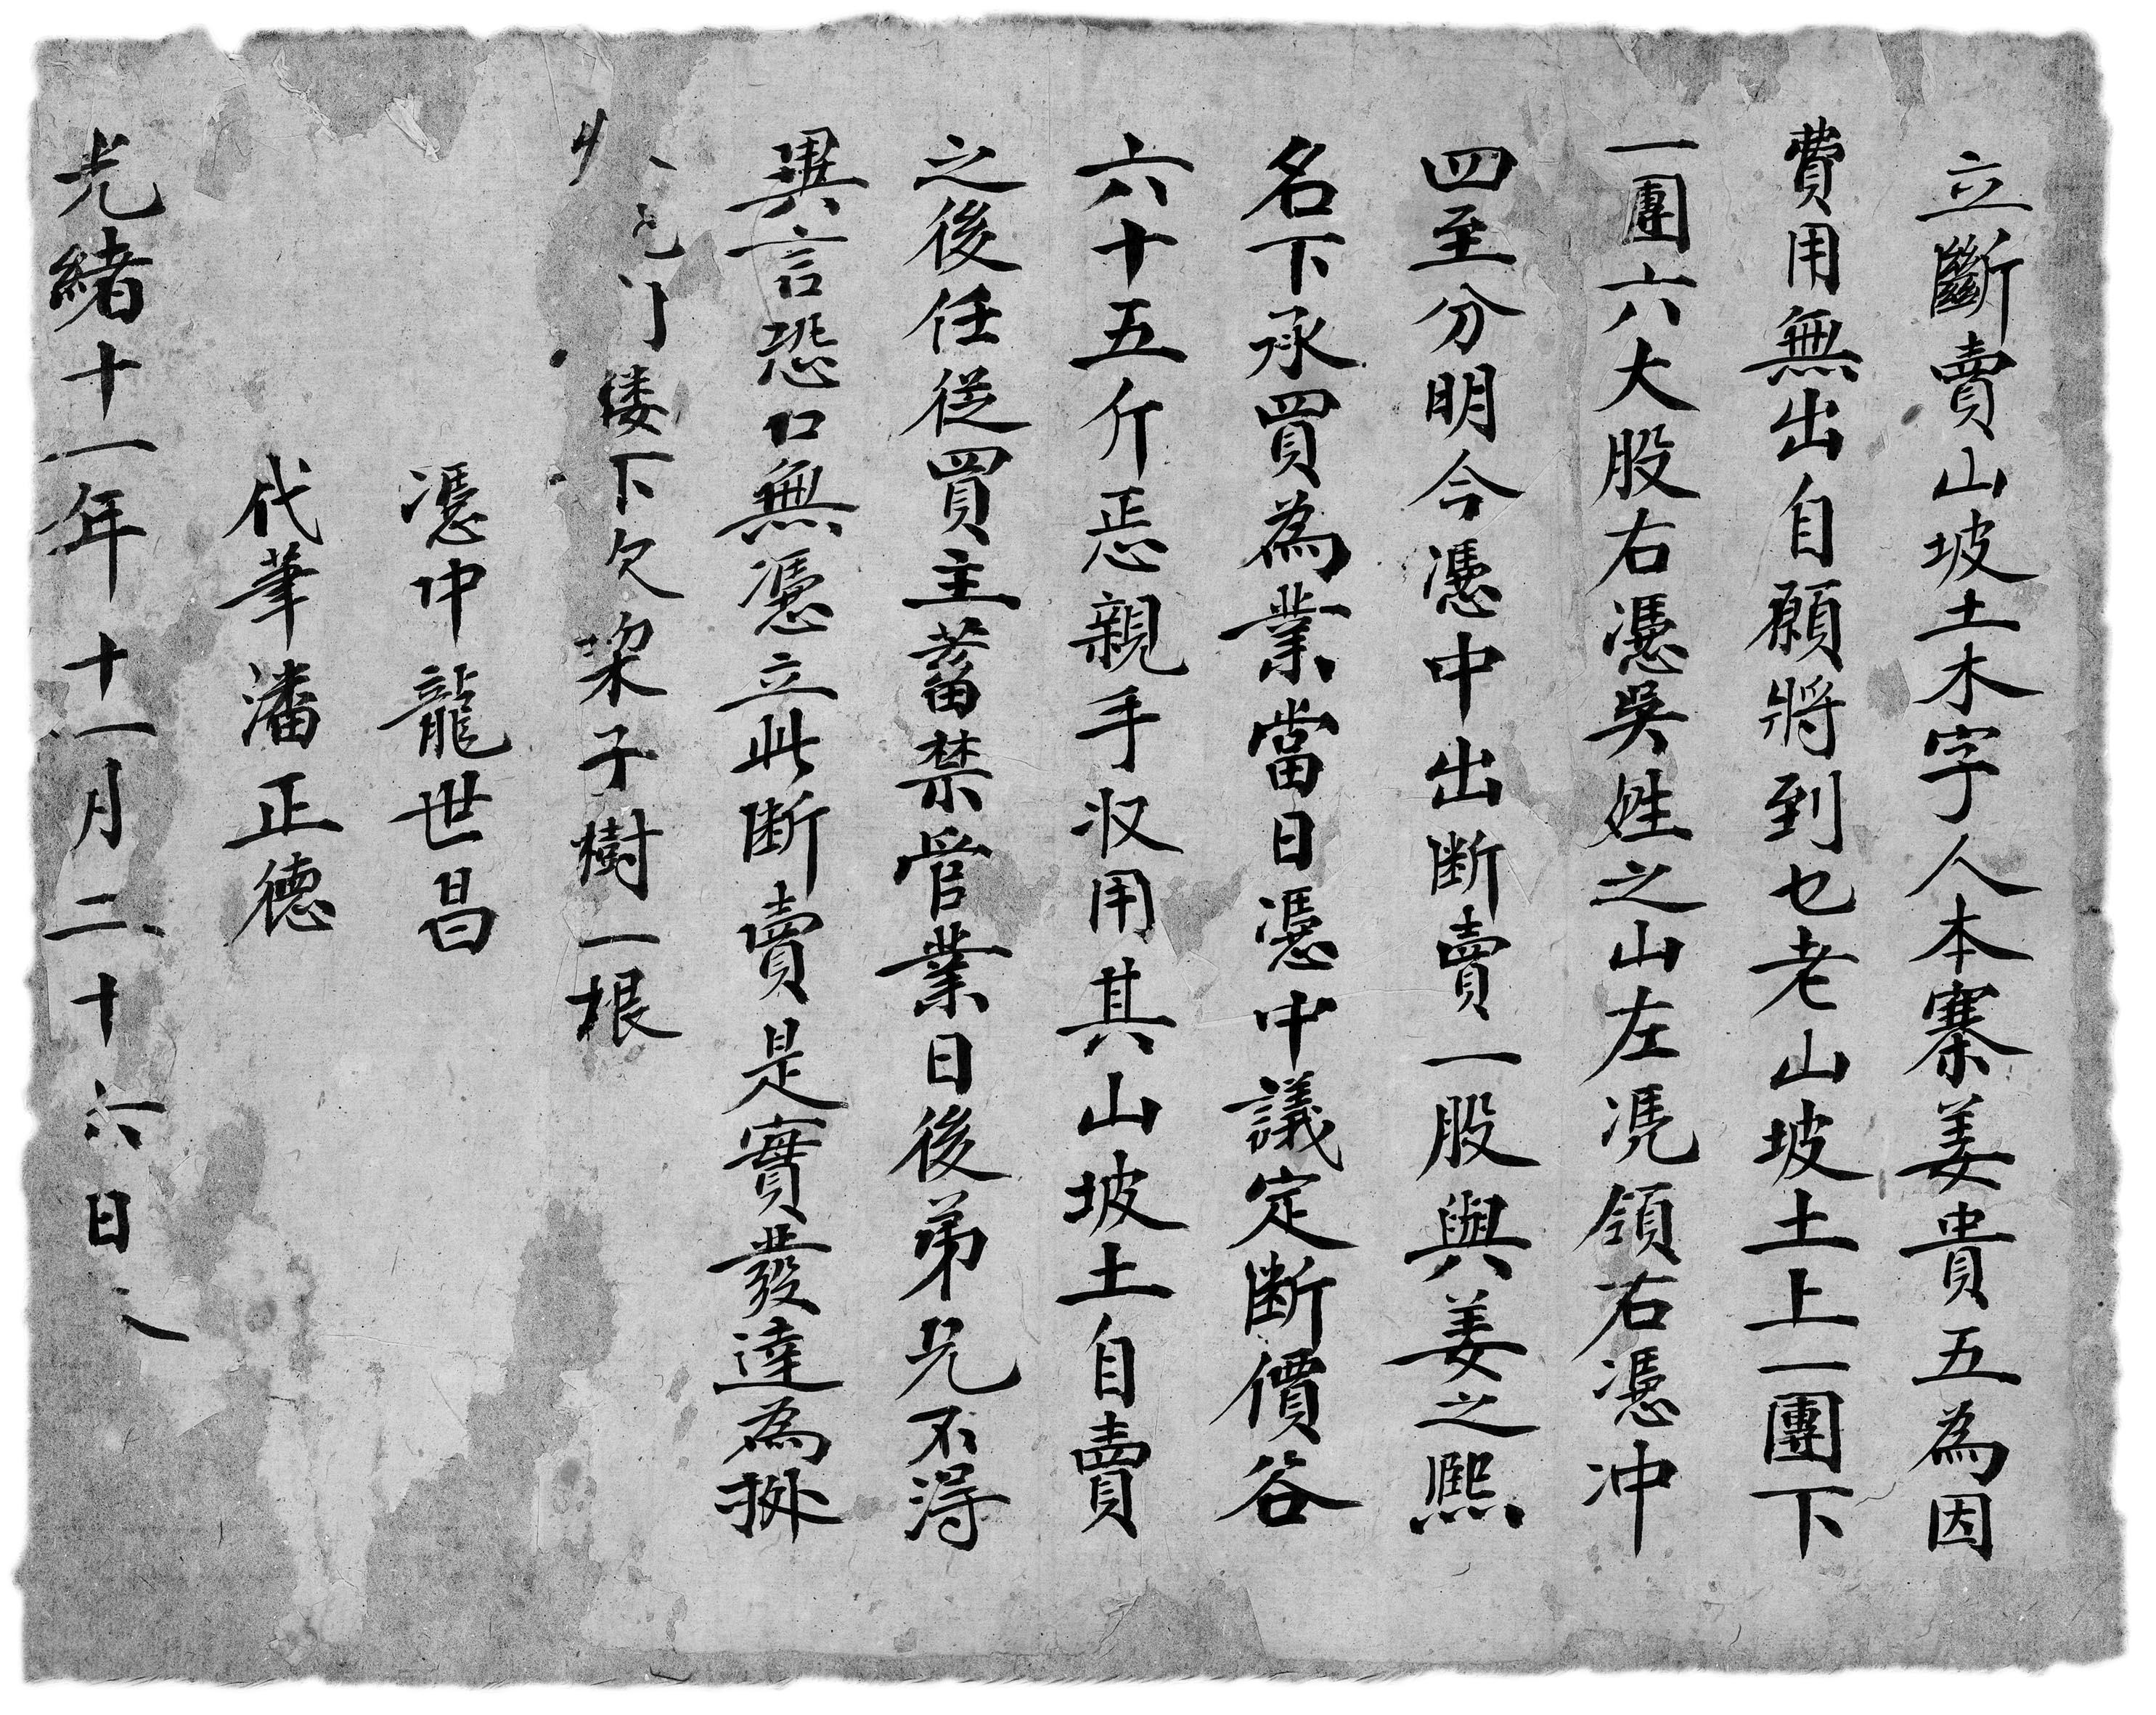 立斷賣山坡土木字人本寨姜貴五為因
費用無出自願將到乜老山坡土上一團下
一團六大股右憑吳姓之山左凴領右憑冲
四至分明今憑中出断賣一股與姜之熙
名下承買為業當日憑中議定断價谷
六十五斤恁親手収用其山坡土自賣
之後任從買主蓄禁管業日後弟兄不淂
異言恐口無憑立此断賣是實發達為抛
下欠梁子樹一根
憑中龍世昌
代筆潘正德
光緒十一年十一月二十六日